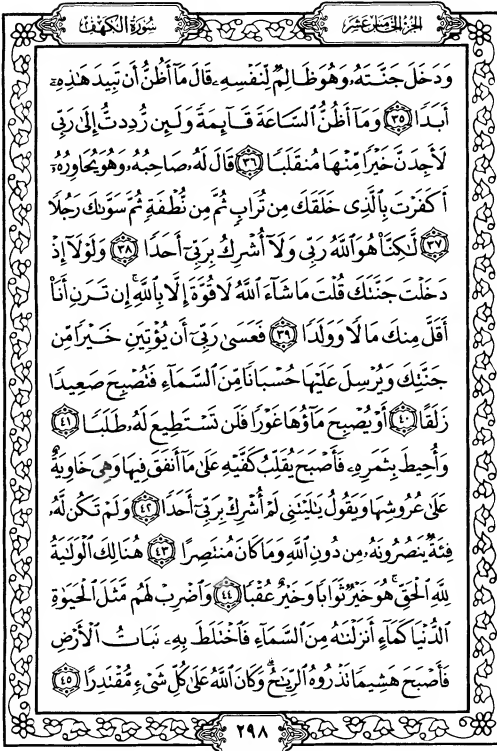 سُورَةُ الكَهْفِ
الجزء الخامس عشر
وَدَخَلَ جَنَّتَهُۥ وَهُوَ ظَالِمٌ لِّنَفْسِهِۦ قَالَ مَآ أَظُنُّ أَن تَبِيدَ هَٰذِهِۦٓ
أَبَدًا ٣٥ وَمَآ أَظُنُّ ٱلسَّاعَةَ قَآئِمَةً وَلَئِن رُّدِدتُّ إِلَىٰ رَبِّى
لَأَجِدَنَّ خَيْرًا مِّنْهَا مُنقَلَبًا ٣٦ قَالَ لَهُۥ صَاحِبُهُۥ وَهُوَ يُحَاوِرُهُۥٓ
أَكَفَرْتَ بِٱلَّذِى خَلَقَكَ مِن تُرَابٍ ثُمَّ مِن نُّطْفَةٍ ثُمَّ سَوَّىٰكَ رَجُلًا
٣٧ لَّٰكِنَّا۠ هُوَ ٱللَّهُ رَبِّى وَلَآ أُشْرِكُ بِرَبِّىٓ أَحَدًا ٣٨ وَلَوْلَآ إِذْ
دَخَلْتَ جَنَّتَكَ قُلْتَ مَا شَآءَ ٱللَّهُ لَا قُوَّةَ إِلَّا بِٱللَّهِ ۚ إِن تَرَنِ أَنَا۠
أَقَلَّ مِنكَ مَالًا وَوَلَدًا ٣٩ فَعَسَىٰ رَبِّىٓ أَن يُؤْتِيَنِ خَيْرًا مِّن
جَنَّتِكَ وَيُرْسِلَ عَلَيْهَا حُسْبَانًا مِّنَ ٱلسَّمَآءِ فَتُصْبِحَ صَعِيدًا
زَلَقًا ٤٠ أَوْ يُصْبِحَ مَآؤُهَا غَوْرًا فَلَن تَسْتَطِيعَ لَهُۥ طَلَبًا ٤١
وَأُحِيطَ بِثَمَرِهِۦ فَأَصْبَحَ يُقَلِّبُ كَفَّيْهِ عَلَىٰ مَآ أَنفَقَ فِيهَا وَهِىَ خَاوِيَةٌ
عَلَىٰ عُرُوشِهَا وَيَقُولُ يَٰلَيْتَنِى لَمْ أُشْرِكْ بِرَبِّىٓ أَحَدًا ٤٢ وَلَمْ تَكُن لَّهُۥ
فِئَةٌ يَنصُرُونَهُۥ مِن دُونِ ٱللَّهِ وَمَا كَانَ مُنتَصِرًا ٤٣ هُنَالِكَ ٱلْوَلَٰيَةُ
لِلَّهِ ٱلْحَقِّ ۚ هُوَ خَيْرٌ ثَوَابًا وَخَيْرٌ عُقْبًا ٤٤ وَٱضْرِبْ لَهُم مَّثَلَ ٱلْحَيَوٰةِ
ٱلدُّنْيَا كَمَآءٍ أَنزَلْنَٰهُ مِنَ ٱلسَّمَآءِ فَٱخْتَلَطَ بِهِۦ نَبَاتُ ٱلْأَرْضِ
فَأَصْبَحَ هَشِيمًا تَذْرُوهُ ٱلرِّيَٰحُ ۗ وَكَانَ ٱللَّهُ عَلَىٰ كُلِّ شَىْءٍ مُّقْتَدِرًا ٤٥
٢٩٨